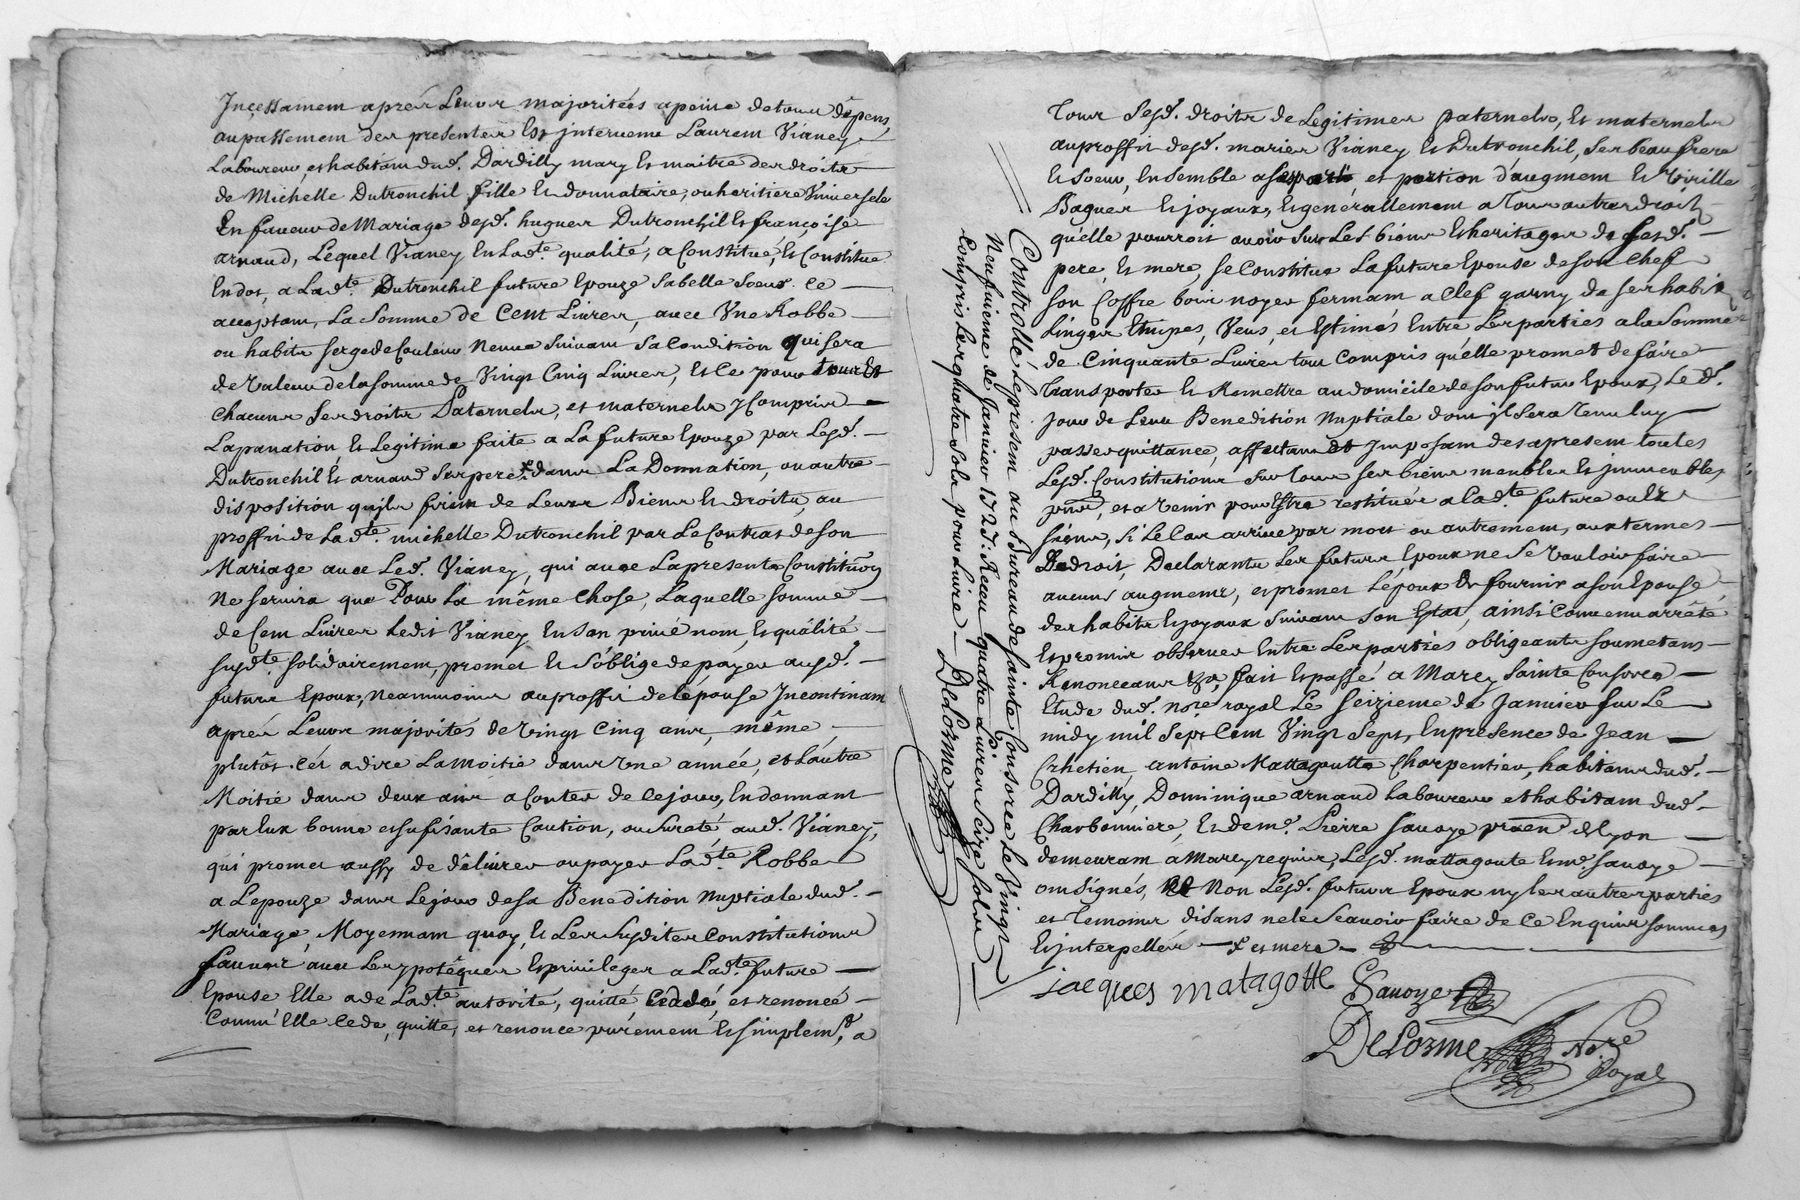 Incessamem aprés Leurs majoritées a peine de tous dêpens,
au passemem des presentes Est jntervenu Laurem Vianey
Laboureur, et habitam dud. Dardilly mary Et maitre des droits
de Michelle Dutronchil fille Et donnataire, ou heritiere Universele
En faveur de Mariage desd. hugues Dutronchil Et françoise
arnaud, Lequel Vianey En lad.te qualité, a Constitué, Et Constitue
En dot, a Lad.te Dutronchil future Epouze sa belle soeur ce
acceptam, La somme de Cent Livres, avec Une Robbe
ou habits serge de Couleur Neuve suivam sa condition qui sera
de valeur de la somme de Vingt Cinq Livres, Et Ce pour tous Et
chacuns ses droits Paternels, et maternels y Compris
Lapanation Et Legitime faite a La future Epouze par Lesd.
Dutronchil Et arnaud ses pere x dans La Donnation, ou autre
disposition qu'jls firent de Leurs Biens Et droits, au
proffit de Lad.te michelle Dutronchil par Le Contrat de son
Mariage avec Led. Vianey, qui avec La presente Constitu͠on
Ne servira que Pour La même chose, Laquelle somme
de Cent Livres Ledit Vianey En son privé nom, Et quâlité
susd.te solidairemem, promet Et s'oblige de payer ausd.
futurs Epoux, Neammoins au proffit de l'épouse Incontinam
aprés Leurs majorités de vingt Cinq ans, même
plutôt. Cés a dire La moitié dans Une année, et L'autre
Moitié dans deux ans a Conter de ce jour, En donnant
par Eux bonne et sufisante Caution, ou sureté aud. Vianey,
qui promet aussy de dêlivrer ou payer Lad.te Robbe
a L'epouze dans Le jour de sa Benedition Nuptiale dud.
Mariage, Moyennam quoy, Et Les susdites constitutions
sauvoir avec Les ypotêques Et privileges a Lad.te future
Epouse Elle a de Lad.te autorité, quitté, Cedé, et renoncé
Comm' Elle Cede, quitte, et renonce purémem Et simplem.t, a
tous sesd. droits de Legitimes paternels, Et maternels
au proffit desd. mariés Vianey Et Dutronchil, ses beau frere
Et soeur, Ensemble a sa part, et portion d'augmem Et virille
Bagues Et joyaux, Et generallemem a tous autres droits
qu'elle pourroit avoir sur Les biens Et heritages de sesd.
pere, Et mere, se Constitue La future Epouse de son chef
son Coffre bois noyer fermam a Clef garny de ses habits
Linges Et nipes, Veus, et Estimés Entre Les parties a la somme
de Cinquante Livres tout Compris qu'elle promet de faire
transporter Et Remettre au domicile de son futur Epoux, Le d.
jour de Leur Benedition Nuptiale dom jl sera tenu luy
passer quittance, affectam Et Imposam des apresem toutes
Lesd. Constitutions sur tous ses biens meubles Et jmmeubles
pnts, et a venir pour Estre restitués a Lad.te future ou Es
siens, si Le Cas arrive par mort ou autremem, aux termes
De droit, Declarants Les futurs Epoux ne se vouloir faire
aucuns augmems, et promet L'époux de fournir a son Epouse
des habits Et joyaux suivam son Estat, ainsi Convenu arrêté
Et promis observer Entre Les parties obligeants soumetans
Renonceans &a, fait Et passé a Marcy Sainte Consorce
Etude dud. No.re royal Le seizieme de Janvier sur Le
midy mil Sept Cent Vingt Sept, En présence de Jean
Crhétien, antoine Mattagoutte Charpentier, habitans dud.
Dardilly, Dominique arnaud Laboureur et habitam dud.
Charbonniere, Et de me. Pierre Savoye pratien de Lyon
demeuram a Marcy requis, Lesd. mattagoute Et me. savoye
om Signés, Et Non Lesd. futurs Epoux ny Les autres parties
et temoins disans ne le Scavoir faire de Ce Enquis sommés
Et jnterpellés — x et mere —
jacques matagotte Savoye
DeLorme No.re Royal
Controollé Le presem au Bureau de Sainte Consorce Le Vingt
Neufvieme de Janvier 1727: Receu quatre Livres Seize Sols
Compris Les quatre Sols pour Livre — DeLorme